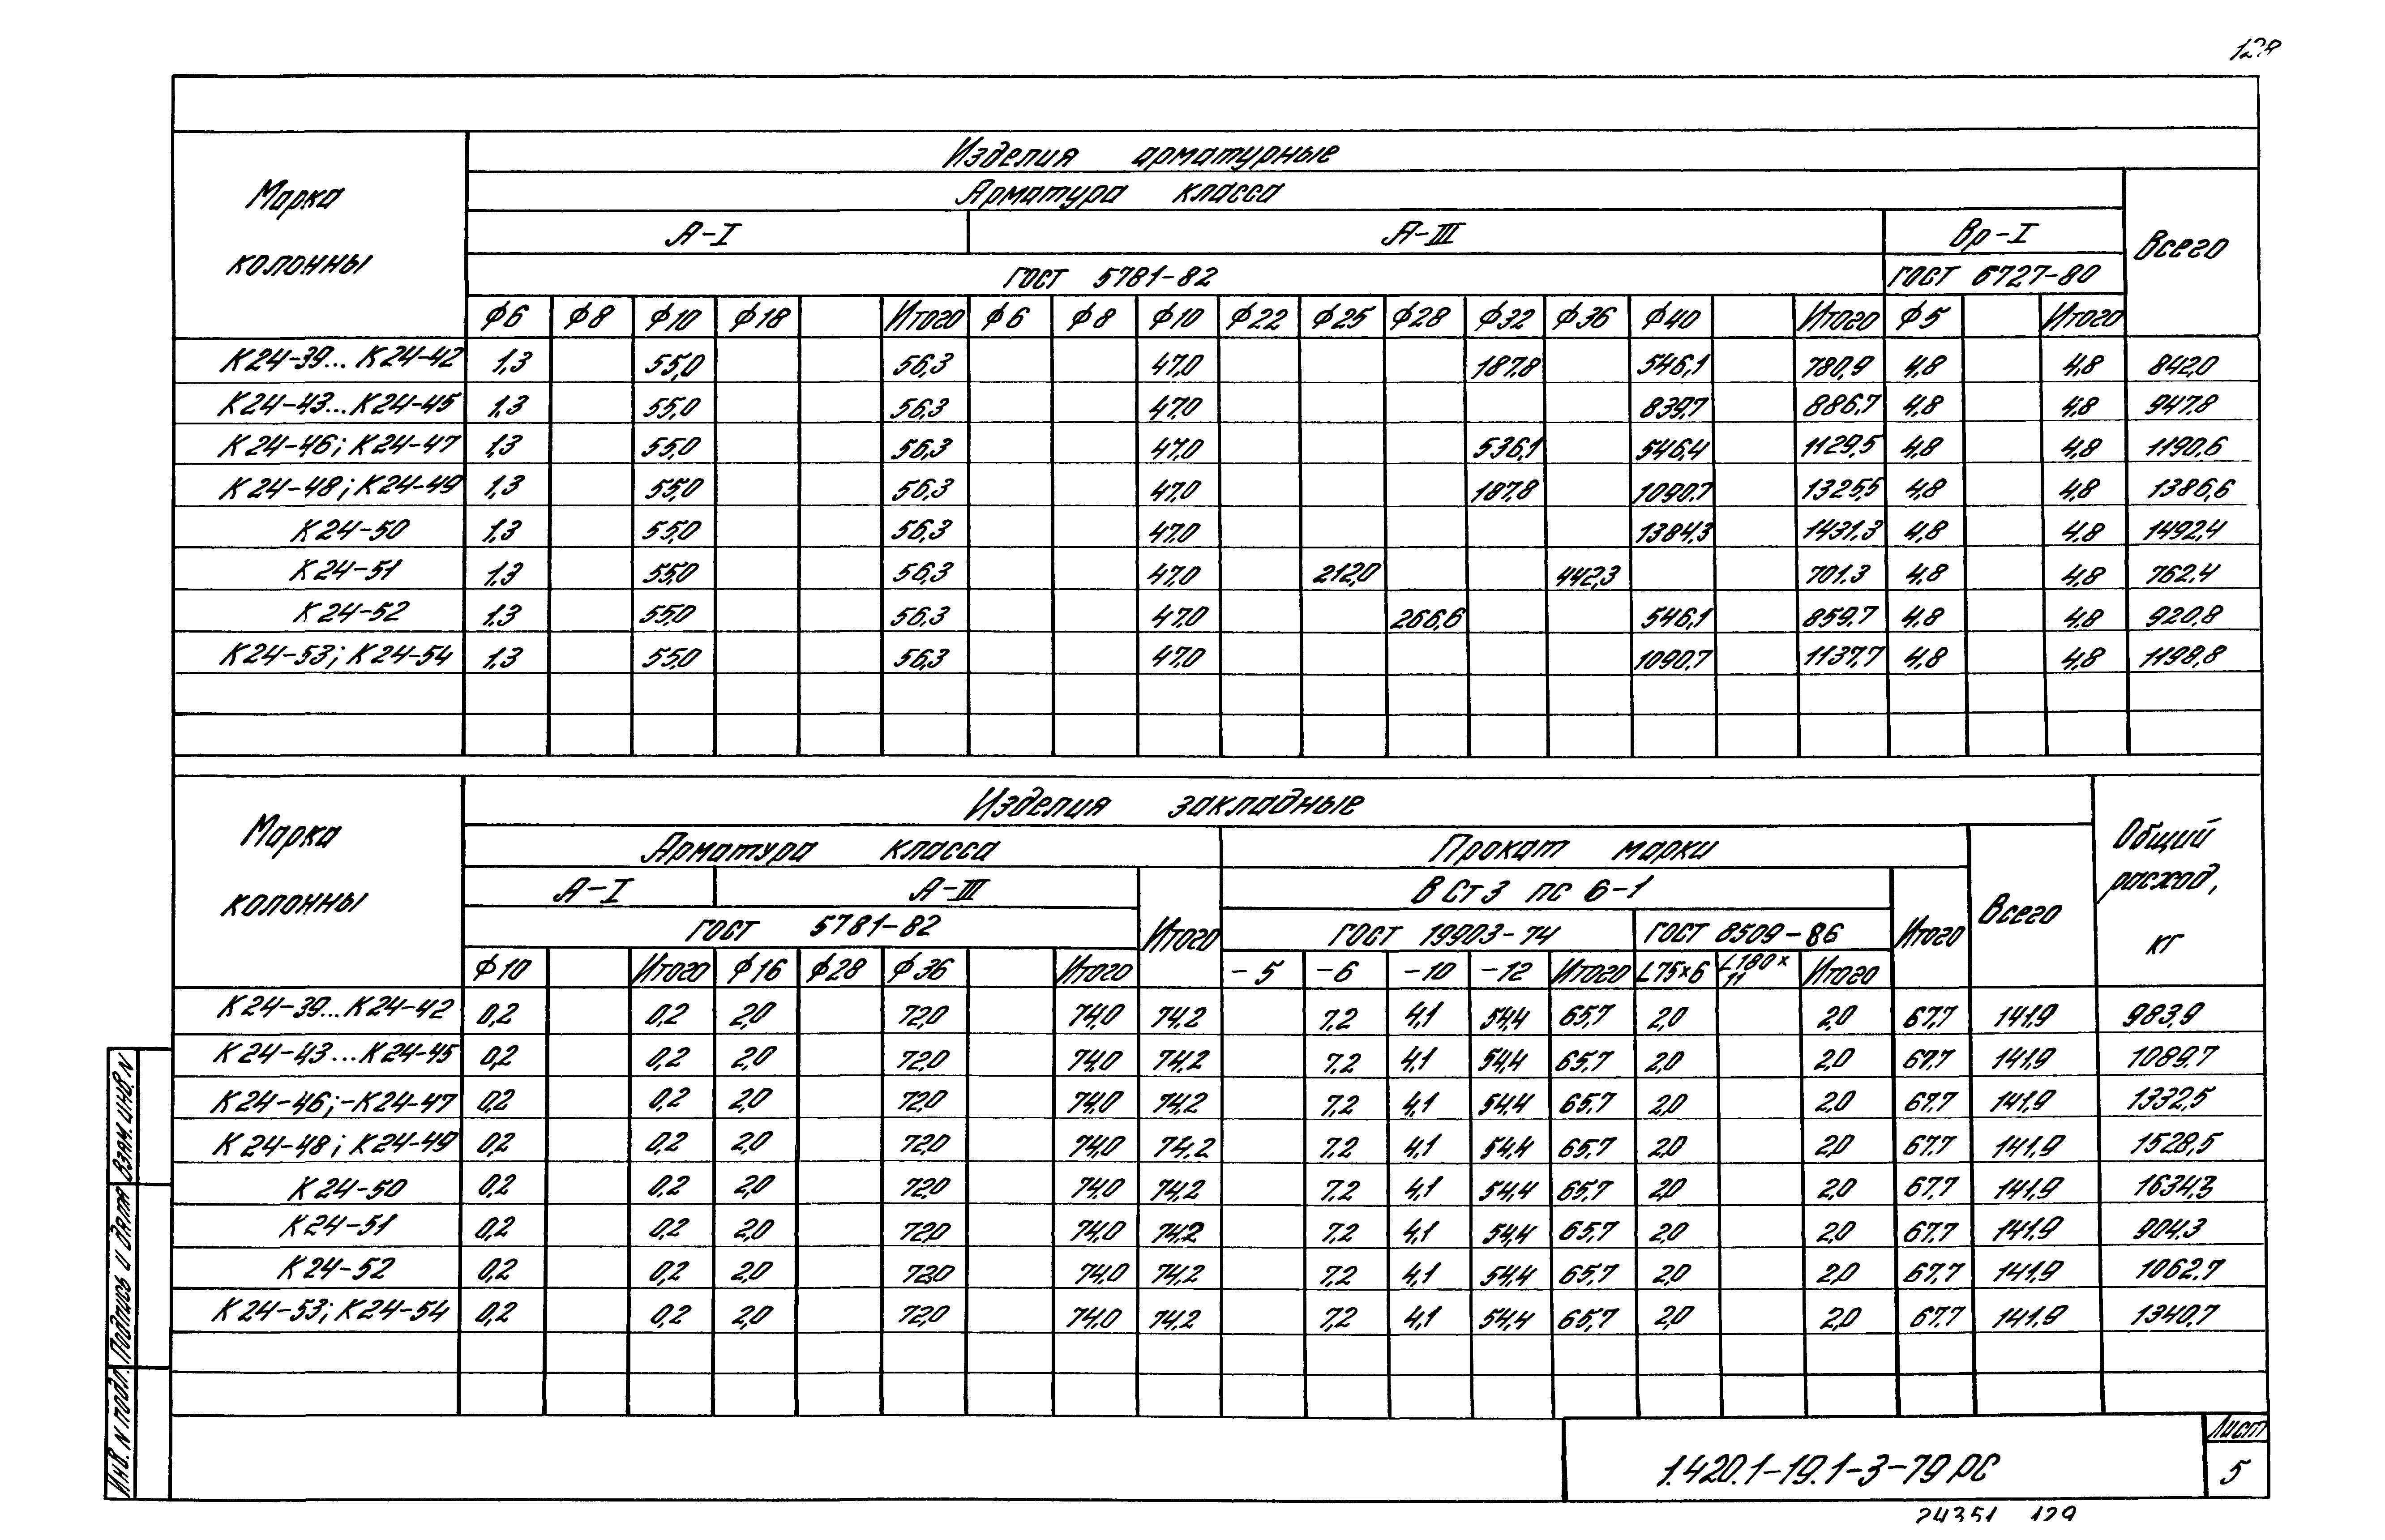 128
Марка колонны
Изделия арматурные
Арматура класса
Всего
А-I А-III Вр-I
ГОСТ 5781-82 ГОСТ 6727-80
ф6 ф8 ф10 ф18 Итого ф6 ф8 ф10 ф22 ф25 ф28 ф32 ф36 ф40 Итого ф5 Итого
К24-39...К24-42 1,3 55,0 56,3 47,0 187,8 546,1 780,9 4,8 4,8 842,0
К24-43...К24-45 1,3 55,0 56,3 47,0 839,7 886,7 4,8 4,8 947,8
К24-46; К24-47 1,3 55,0 56,3 47,0 536,1 546,4 1129,5 4,8 4,8 1190,6
К24-48; К24-49 1,3 55,0 56,3 47,0 187,8 1090,7 1325,5 4,8 4,8 1386,6
К24-50 1,3 55,0 56,3 47,0 1384,3 1431,3 4,8 4,8 1492,4
К24-51 1,3 55,0 56,3 47,0 212,0 442,3 701,3 4,8 4,8 762,4
К24-52 1,3 55,0 56,3 47,0 266,6 546,1 859,7 4,8 4,8 920,8
К24-53; К24-54 1,3 55,0 56,3 47,0 1090,7 1137,7 4,8 4,8 1198,8
Марка колонны
Изделия закладные
Общий расход, кг
Арматура класса Прокат марки
Всего
А-I А-III Итого В Ст3 пс 6-1 Итого
ГОСТ 5781-82 ГОСТ 19903-74 ГОСТ 8509-86
ф10 Итого ф16 ф28 ф36 Итого -5 -6 -10 -12 Итого L75×6 L180×11 Итого
К24-39...К24-42 0,2 0,2 2,0 72,0 74,0 74,2 7,2 4,1 54,4 65,7 2,0 2,0 67,7 141,9 983,9
К24-43...К24-45 0,2 0,2 2,0 72,0 74,0 74,2 7,2 4,1 54,4 65,7 2,0 2,0 67,7 141,9 1089,7
К24-46;-К24-47 0,2 0,2 2,0 72,0 74,0 74,2 7,2 4,1 54,4 65,7 2,0 2,0 67,7 141,9 1332,5
К24-48; К24-49 0,2 0,2 2,0 72,0 74,0 74,2 7,2 4,1 54,4 65,7 2,0 2,0 67,7 141,9 1528,5
К24-50 0,2 0,2 2,0 72,0 74,0 74,2 7,2 4,1 54,4 65,7 2,0 2,0 67,7 141,9 1634,3
К24-51 0,2 0,2 2,0 72,0 74,0 74,2 7,2 4,1 54,4 65,7 2,0 2,0 67,7 141,9 904,3
К24-52 0,2 0,2 2,0 72,0 74,0 74,2 7,2 4,1 54,4 65,7 2,0 2,0 67,7 141,9 1062,7
К24-53; К24-54 0,2 0,2 2,0 72,0 74,0 74,2 7,2 4,1 54,4 65,7 2,0 2,0 67,7 141,9 1340,7
Взам. инв. N
Подпись и дата
Инв. N подл.
1.420.1-19.1-3-79 РС
Лист
5
24351 129